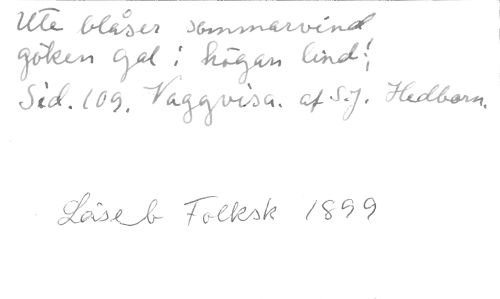 Ute blåser sommarvind
göken gal i högan lind!
Sid. 109. Vaggvisa. af S.J. Hedborn.
Läseb Folksk 1899